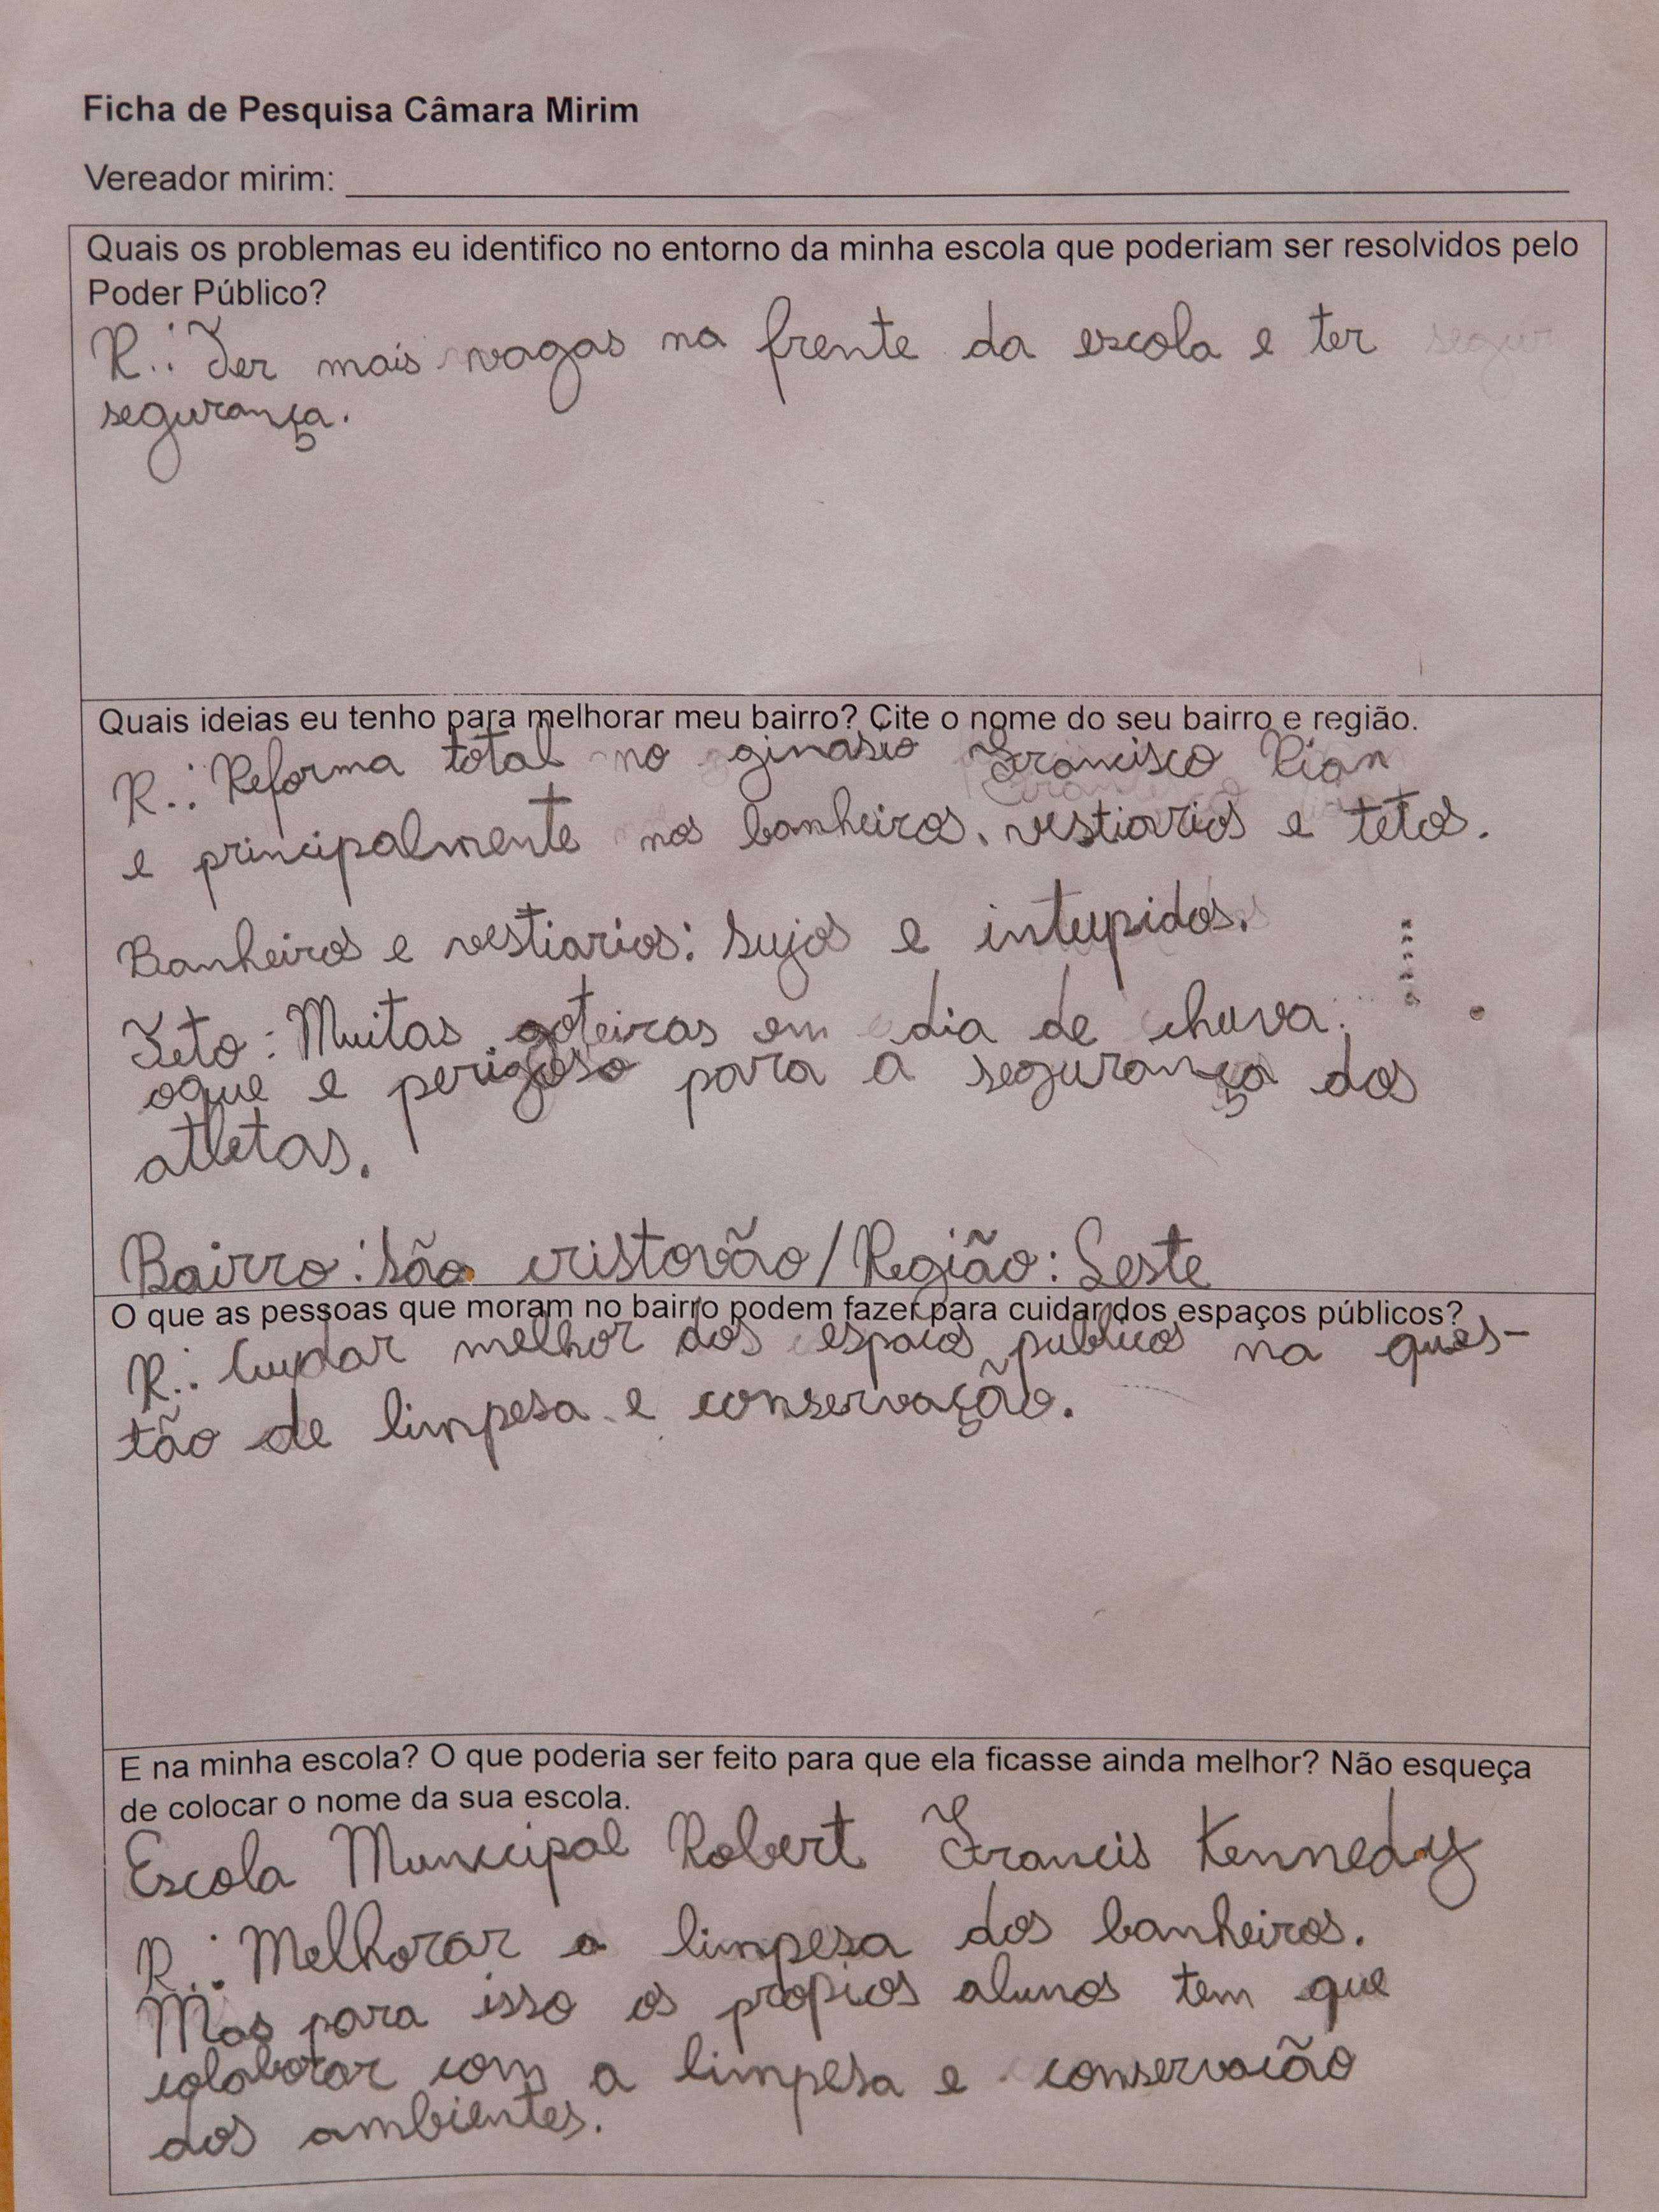 Ficha de Pesquisa Câmara Mirim
Vereador mirim:
Quais os problemas eu identifico no entorno da minha escola que poderiam ser resolvidos pelo
Poder Público?
R.: Ter mais vagas na frente da escola e ter
segurança.
Quais ideias eu tenho para melhorar meu bairro? Cite o nome do seu bairro e região.
R.: Reforma total no ginásio Francisco
e principalmente nos banheiros, vestiarios e tetos.
Banheiros e vestiarios: Sujos e intupidos.
Teto: Muitas goteiras em dia de chuva.
oque e perigoso para a segurança dos
atletas.
Bairro: São cristovão / Região: Leste
O que as pessoas que moram no bairro podem fazer para cuidar dos espaços públicos?
R.: Cuydar melhor dos espacos publicos na ques-
tão de limpesa e conservação.
E na minha escola? O que poderia ser feito para que ela ficasse ainda melhor? Não esqueça
de colocar o nome da sua escola.
Escola Municipal Robert Francis Kennedy
R.: Melhorar a limpesa dos banheiros.
Mas para isso os propios alunos tem que
colaborar com a limpesa e conservacão
dos ambientes.